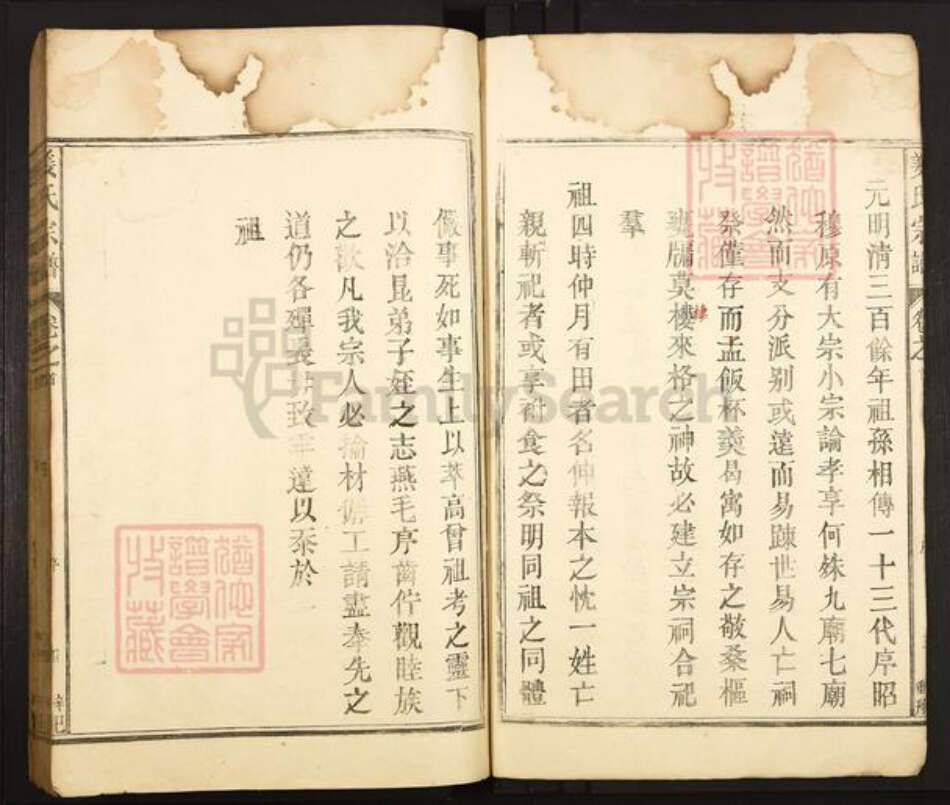 元明清三百餘年祖孫相傳一十三代序昭
穆原有大宗小宗論孝享何殊九廟七廟
然而支分派别或遠而易踈世易人亡祠
祭僅存而盂飯杯羮曷寓如存之敬桑樞
甕牖莫樓來格之神故必建立宗祠合祀
棲
羣
祖四時仲月有田者名伸報本之忱一姓亡
親斬祀者或享祔食之祭明同祖之同體
儼事死如事生上以萃高曾祖考之靈下
以洽昆弟子姪之志燕毛序齒佇觀睦族
之歡凡我宗人必掄材 工請盡奉先之
道仍各殫 致 達以忝於
祖
氏宗譜
卷之首
姜氏宗譜
卷之
FamilySearch
譜學會
收藏
譜學會
收藏